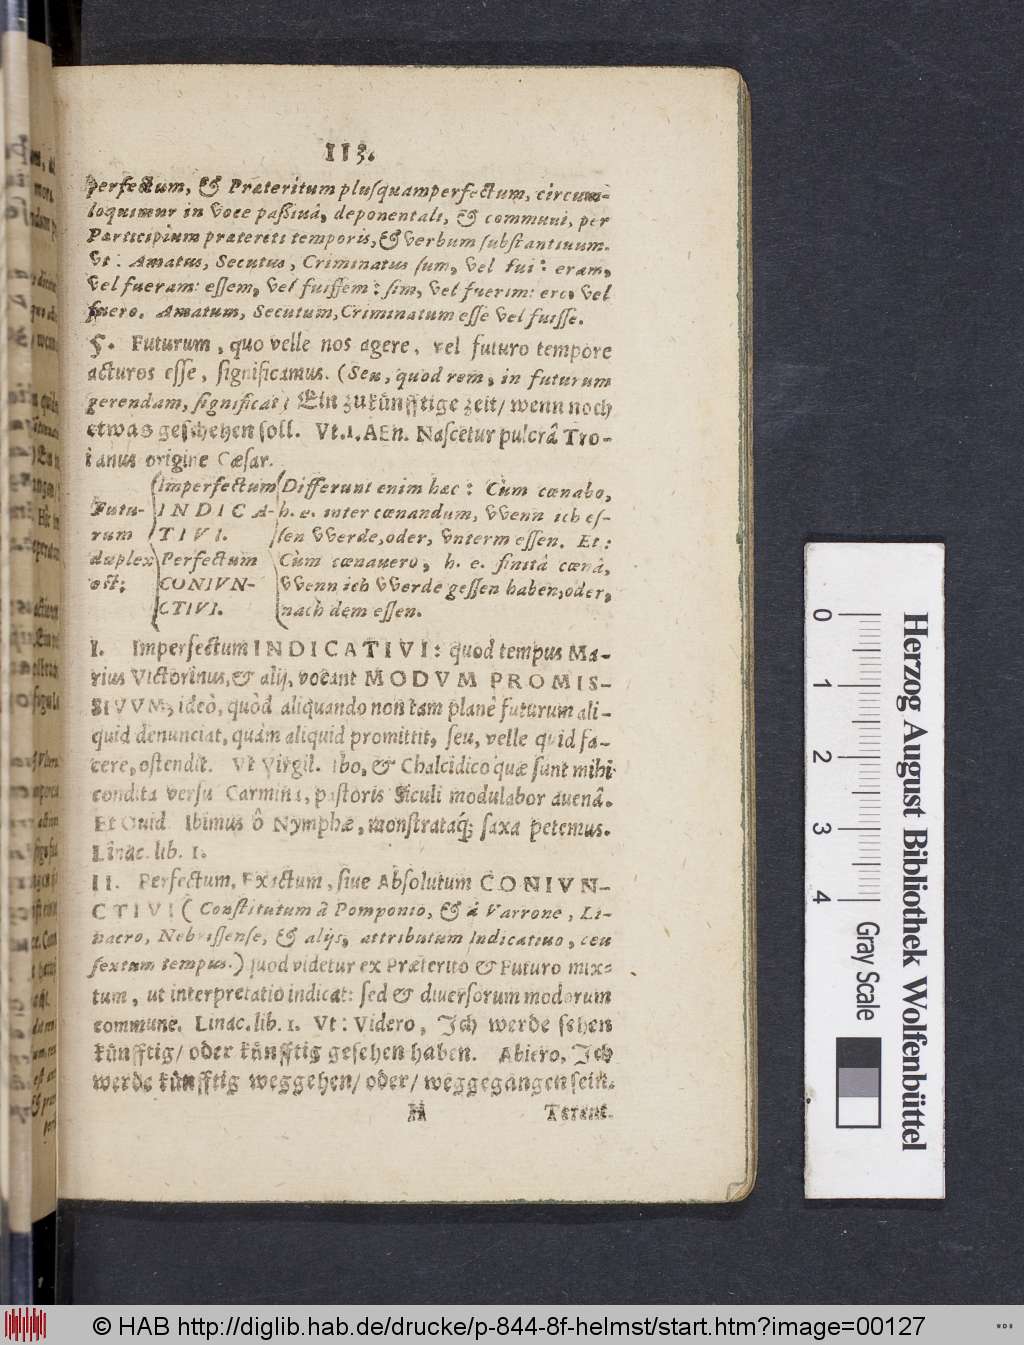 113.
perfectum, & Præteritum pluſquamperfectum, circum-
loquimur in voce paßivâ, deponentali, & communi, per
Participium præteriti temporis, & verbum ſubſtantivum.
Vt: Amatus, Secutus, Criminatus ſum, vel fui: eram,
vel fueram: eſſem, vel fuiſſem: ſim, vel fuerim: ero, vel
fuero. Amatum, Secutum, Criminatum eſſe vel fuiſſe.
5. Futurum, quo velle nos agere, vel futuro tempore
acturos eſſe, ſignificamus. (Seu, quod rem, in futurum
gerendam, ſignificat) Ein zukünfftige zeit/ wenn noch
etwas geſchehen ſoll. Vt. 1. AEn. Naſcetur pulcrâ Tro-
ianus origine Cæſar.
Futu-
rum
duplex
est:
Imperfectum
INDICA-
TIVI.
Perfectum
CONIVN-
CTIVI.
Differunt enim hæc: Cùm cœnabo,
h. e. inter cœnandum, VVenn ich eſ-
ſen VVerde, oder, vnterm eſſen. Et:
Cùm cœnavero, h. e. finitâ cœnâ,
VVenn ich VVerde geſſen haben, oder,
nach dem eſſen.
I. Imperfectum INDICATIVI: quod tempus Ma-
rius Victorinus, & alij, vocant MODVM PROMIS-
SIVVM, ideò, quòd aliquando non tam planè futurum ali-
quid denunciat, quàm aliquid promittit, ſeu, velle quid fa-
cere, oſtendit. Vt Virgil. Ibo, & Chalcidico quæ ſunt mihi
condita verſu Carmina, paſtoris Siculi modulabor auenâ.
Et Ouid. Ibimus ô Nymphæ, monſtrataq; ſaxa petemus.
Linac. lib. 1.
II. Perfectum, Exactum, ſiue Abſolutum CONIVN-
CTIVI (Conſtitutum â Pomponio, & â Varrone, Li-
nacro, Nebriſſenſe, & alijs, attributum Indicativo, ceu
ſextum tempus.) quod videtur ex Præterito & Futuro mix-
tum, ut interpretatio indicat: ſed & diuerſorum modorum
commune. Linac. lib. 1. Vt: Videro, Ich werde ſehen
künfftig/ oder künfftig geſehen haben. Abiero, Ich
werde künfftig weggehen/ oder/ weggegangen ſein.
H Terent.
0 1 2 3 4
Gray Scale
Herzog August Bibliothek Wolfenbüttel
© HAB http://diglib.hab.de/drucke/p-844-8f-helmst/start.htm?image=00127